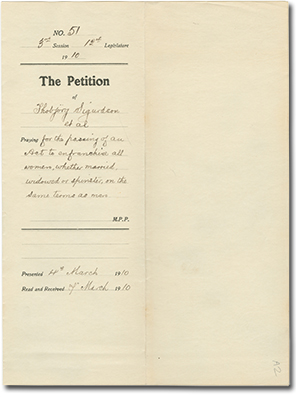 NO. 51
3rd Session 12th Legislature
1910
The Petition
of
Thorbjorg Sigurdson
et al
Praying for the passing of an
Act to enfranchise all
women, whether married,
widowed or spinster, on the
same terms as men
M.P.P.
Presented 4th March 1910
Read and Received 7 March 1910